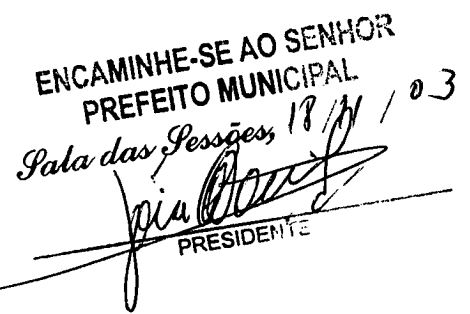 ENCAMINHE-SE AO SENHOR
PREFEITO MUNICIPAL
Sala das Sessões, 18/11/03
PRESIDENTE